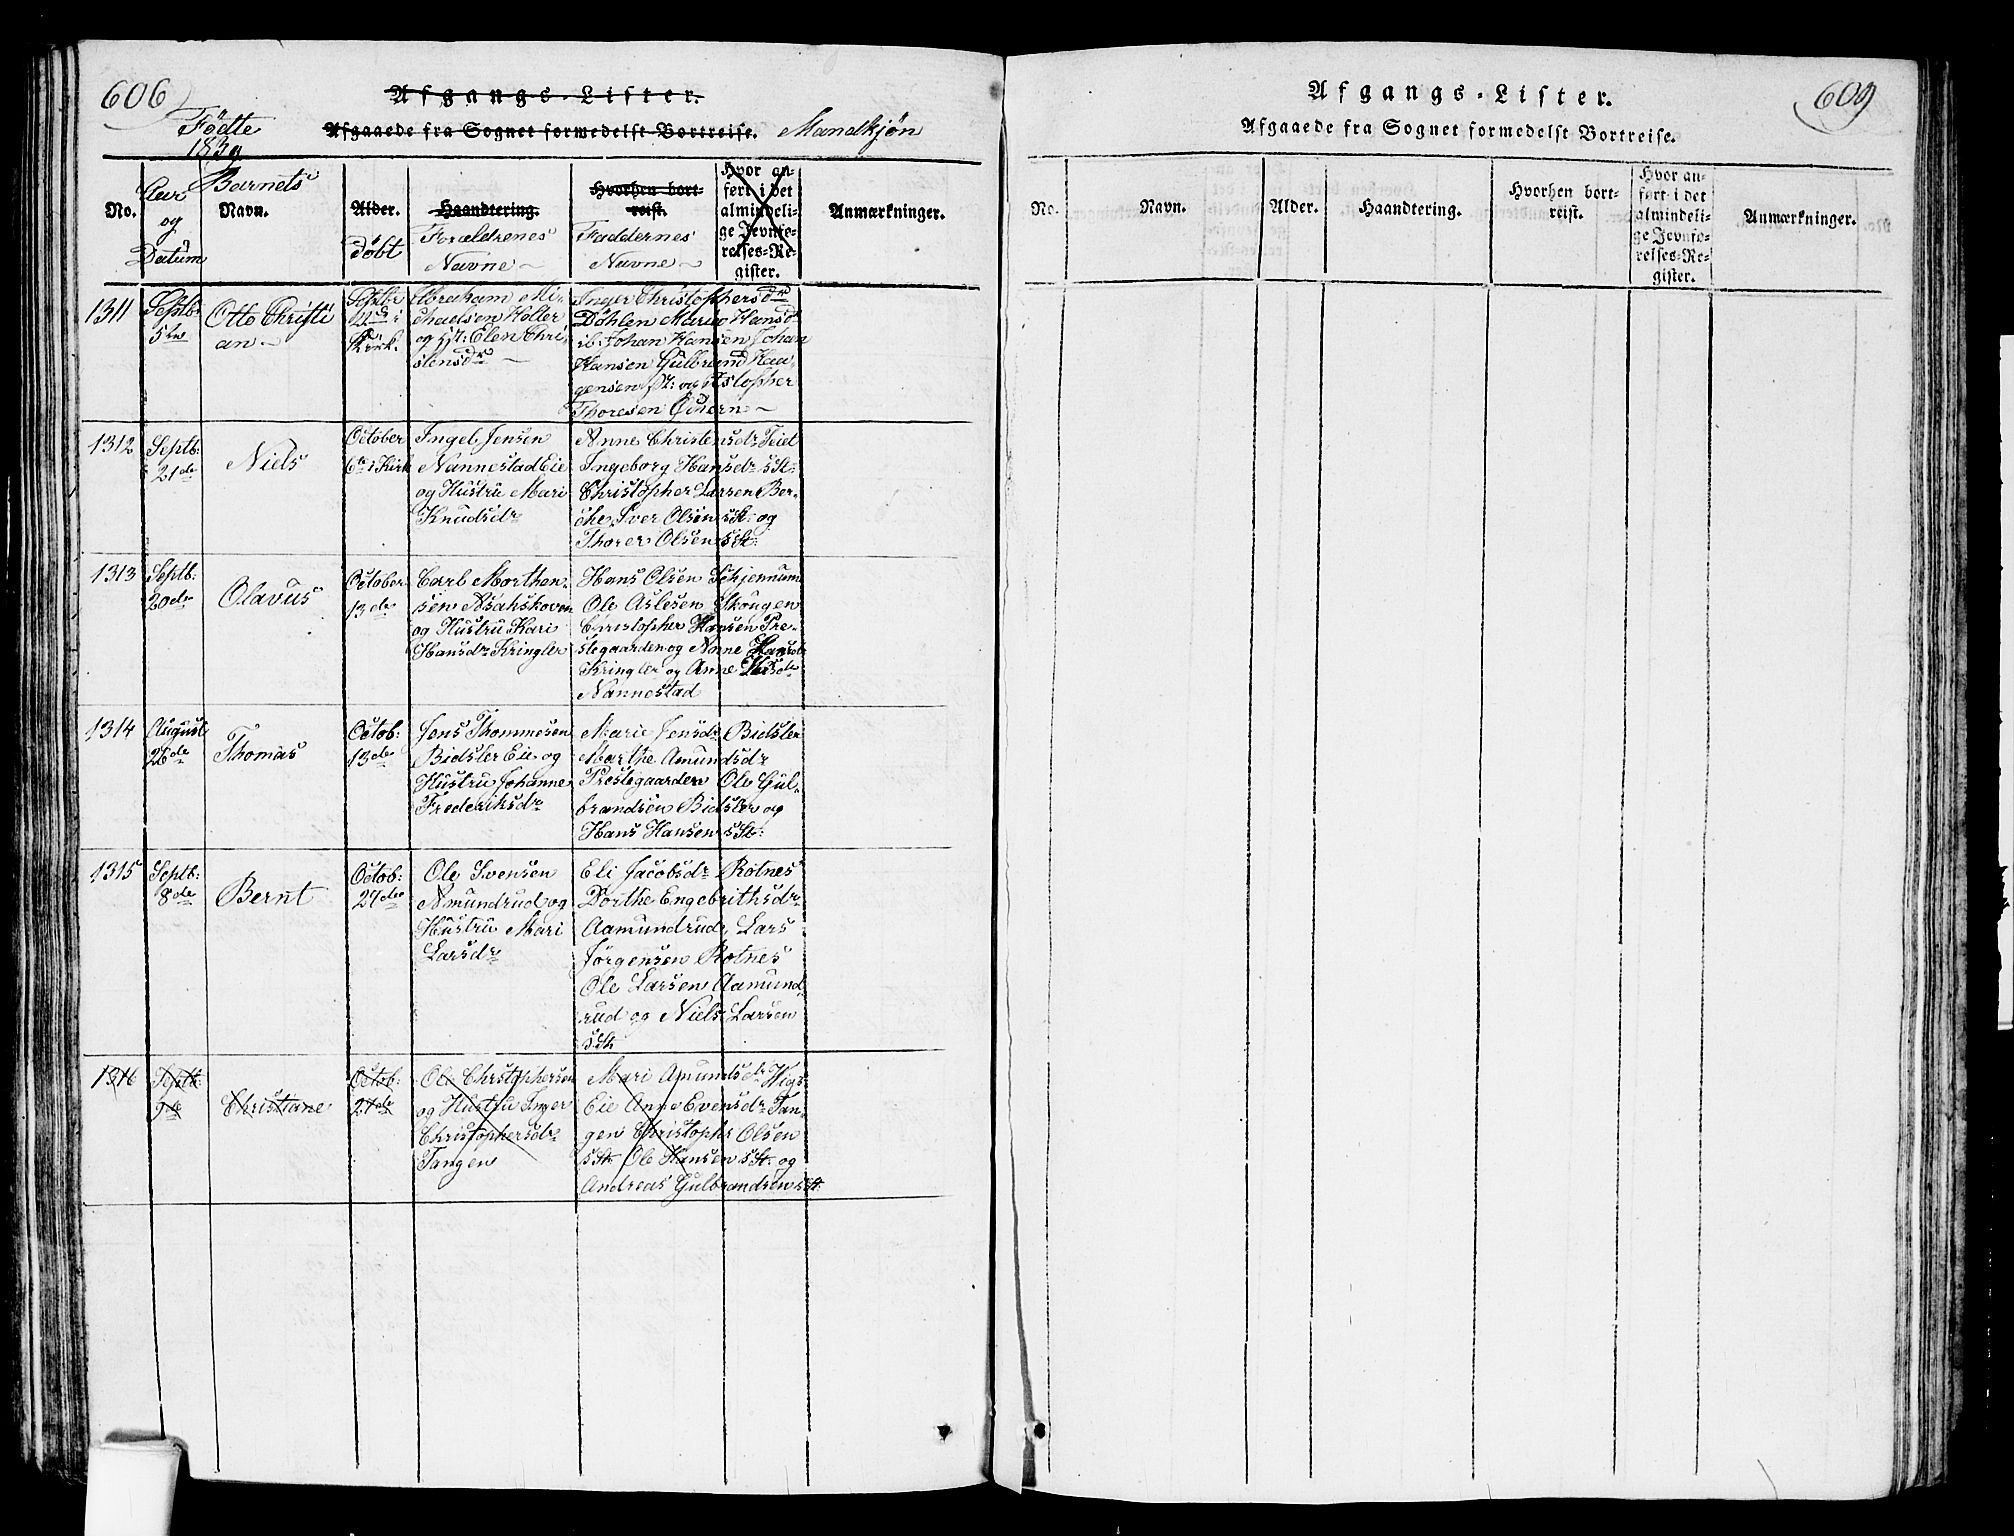 606
Afgangs-Lister.
Fødte
1839
Afgaaede fra Sognet formedelst Bortreise. Mandkjøn
No.
Aar
og
Datum
Barnets
Navn.
Alder.
Døbt
Haandtering.
Forældrenes
Navne
Hvorhen bort-
reist.
Faddernes
Navne
Hvor an-
ført i det
almindeli-
ge Jevnfø-
relses-Re-
gister.
Anmærkninger.
1311
Septb:
5te
Otto Christi
an
Septbr
i
Kirk.
Abraham Mi-
chaelsen Holler
og Elen Chri-
stensdr
Inger Christophersdr
Døhlen Marie Hansd
ib: Johan Hansen Johan
Hansen Gulbrand Haa-
gensen og Astopher
Thoresen
1312
Septb:
21de
Niels
October
6te i Kirk
Ingel Jensen
Nannestad Eie
og Hustru Mari
Knudsdr
Anne Christensdr Teiel
Ingeborg Hansdr s St:
Christopher Larsen Ber-
Iver Olsen s St: og
Thorer Olsen s St:
1313
Septb:
20de
Olavus
October
13de
Carl Morthen-
sen Asakskoven
og Hustru Kari
Hansdr Kringler
Hans Olsen Schjennum
Ole Aslesen Skougen
Christopher Hansen Pre-
stegaarden og Anne Hansdr
Kringler og Anne
Nannestad
1314
August
26de
Thomas
Octob:
13de
Jens Thommesen
Bidsler Eie og
Hustru Johanne
Frederiksdr
Marie Jensdr Bidsler
Marthe Amundsdr
Prestegaarden Ole Gul-
brandsen Bidsler og
Hans Hansen s St:
1315
Septb:
8de
Bernt
Octob:
27de
Ole Svensen
Amundrud og
Hustru Mari
Larsdr
Eli Jacobsdr Rotnes
Dorthe Engebrithsdr
Aamundrud, Lars
Jørgensen Rotnes
Ole Larsen Aamund-
rud og Niels Larsen
s St
1316
Septb:
9de
Christiane
Octob:
27de
Ole Christophersen
og Hustru Inger
Christophersdr
Tangen
Mari Amundsdr Higs
Eie Anne Evensdr Tan-
gen Christophr Olsen
s St: Ole Hansen s St: og
Andreas Gulbrandsen s St:
609
Afgangs-Lister.
Afgaaede fra Sognet formedelst Bortreise.
No.
Navn.
Alder.
Haandtering.
Hvorhen bort-
reist.
Hvor an-
ført i det
almindeli-
ge Jevnfø-
relses-Re-
gister.
Anmærkninger.